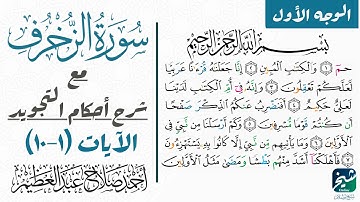 الوجه الأول
سُورَةُ الزُّخْرُفِ
مع
شرح أحكام التجويد
الآيات (١-١٠)
أحمد صلاح عبد العظيم
بِسْمِ اللَّهِ الرَّحْمَٰنِ الرَّحِيمِ
حمٓ ۝١ وَالْكِتَابِ الْمُبِينِ ۝٢ إِنَّا جَعَلْنَاهُ قُرْآنًا عَرَبِيًّا
لَّعَلَّكُمْ تَعْقِلُونَ ۝٣ وَإِنَّهُ فِي أُمِّ الْكِتَابِ لَدَيْنَا
لَعَلِيٌّ حَكِيمٌ ۝٤ أَفَنَضْرِبُ عَنكُمُ الذِّكْرَ صَفْحًا
أَن كُنتُمْ قَوْمًا مُّسْرِفِينَ ۝٥ وَكَمْ أَرْسَلْنَا مِن نَّبِيٍّ فِي
الْأَوَّلِينَ ۝٦ وَمَا يَأْتِيهِم مِّن نَّبِيٍّ إِلَّا كَانُوا بِهِ يَسْتَهْزِئُونَ
۝٧ فَأَهْلَكْنَا أَشَدَّ مِنْهُم بَطْشًا وَمَضَىٰ مَثَلُ الْأَوَّلِينَ
شيخ